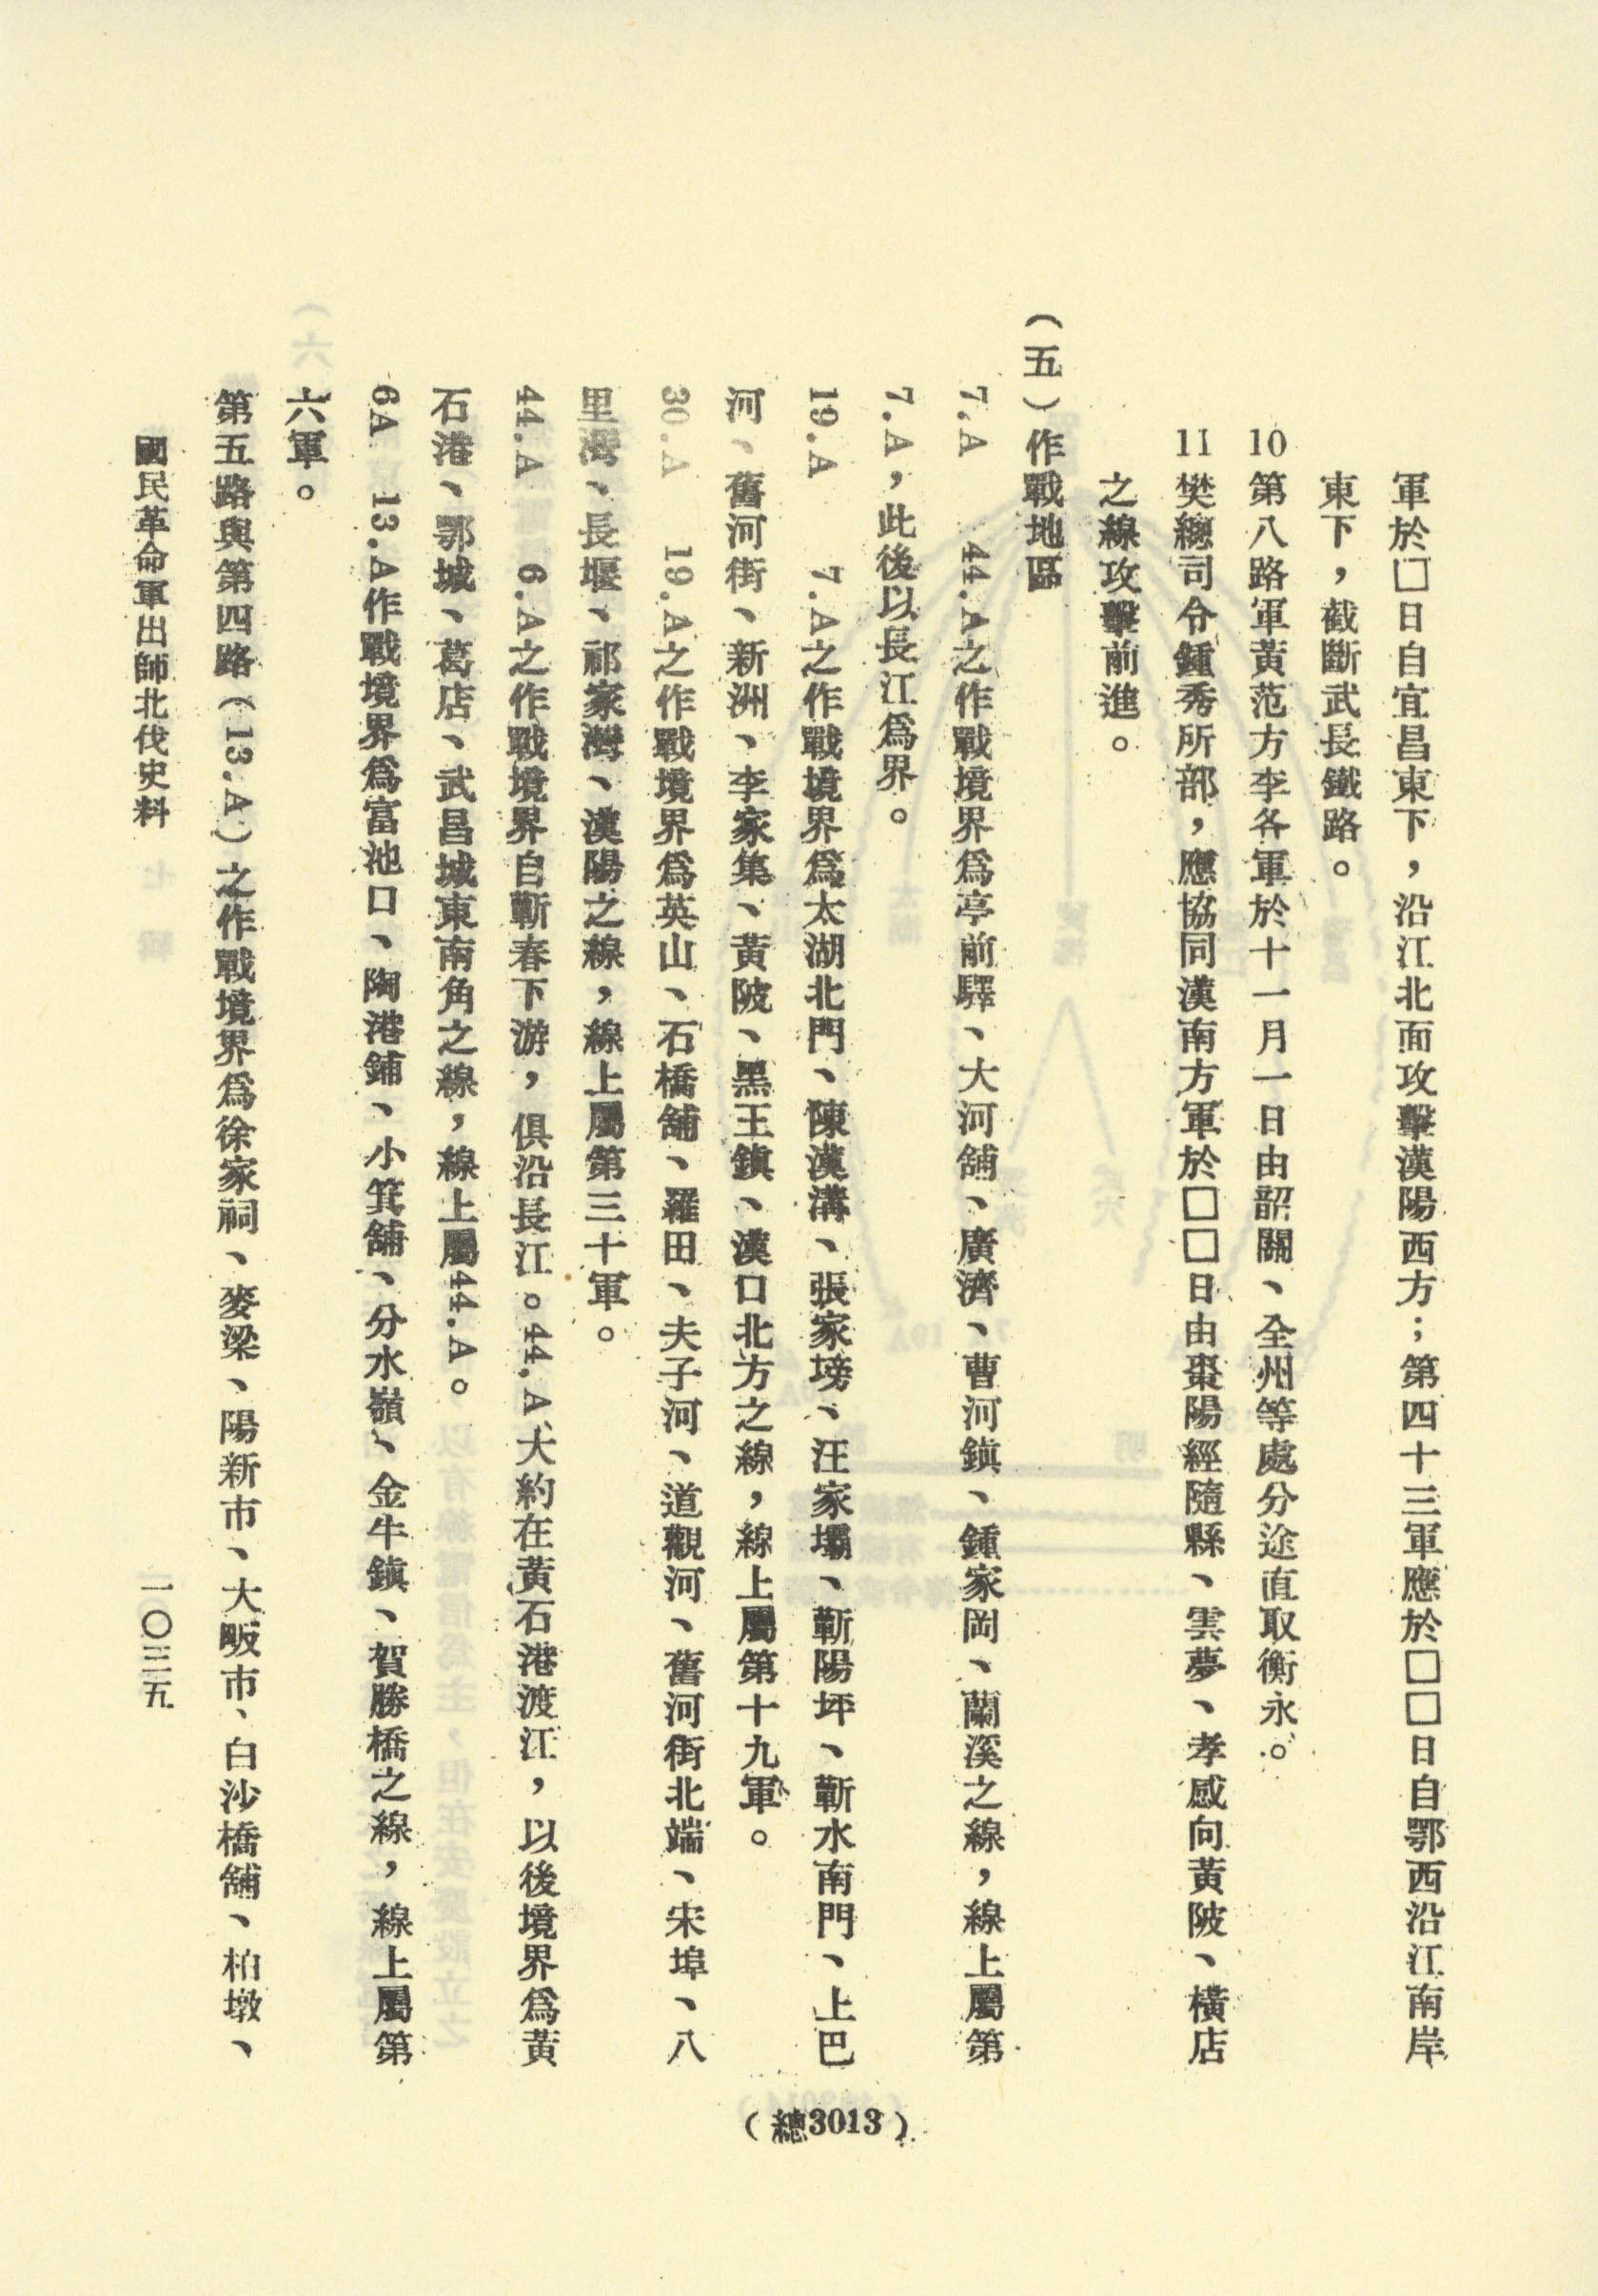 軍於□日自宜昌東下，沿江北面攻擊漢陽西方；第四十三軍應於□□日自鄂西沿江南岸
東下，截斷武長鐵路。
10第八路軍黃范方李各軍於十一月一日由韶關、全州等處分途直取衡永。
11樊總司令鍾秀所部，應協同漢南方軍於□□日由棗陽經隨縣、雲夢、孝感向黃陂、橫店
之線攻擊前進。
（五）作戰地區
7.A 44.A之作戰境界爲亭前驛、大河舖、廣濟、曹河鎮、鍾家岡、蘭溪之線，線上屬第
7.A，此後以長江爲界。
19.A 7.A之作戰境界爲太湖北門、陳漢溝、張家塝、汪家壩、蘄陽坪、蘄水南門、上巴
河、舊河街、新洲、李家集、黃陂、黑王鎮、漢口北方之線，線上屬第十九軍。
30.A 19.A之作戰境界爲英山、石橋舖、羅田、夫子河、道觀河、舊河街北端、宋埠、八
里灣、長堰、祁家灣、漢陽之線，線上屬第三十軍。
44.A 6.A之作戰境界自蘄春下游，俱沿長江。44.A大約在黃石港渡江，以後境界爲黃
石港、鄂城、葛店、武昌城東南角之線，線上屬44.A。
6A 13.A作戰境界爲富池口、陶港鋪、小箕舖、分水嶺、金牛鎮、賀勝橋之線，線上屬第
六軍。
第五路與第四路（13.A）之作戰境界爲徐家祠、麥梁、陽新市、大畈市、白沙橋舖、柏墩、
國民革命軍出師北伐史料
一〇三五
（總3013）